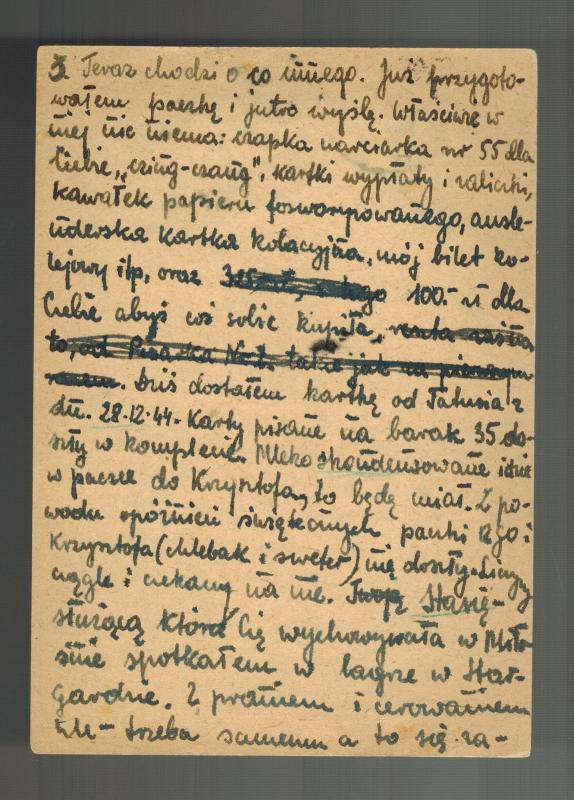 3. Teraz chodzi o co innego. Już przygoto-
wałem paczkę i jutro wyślę. Właściwie w
niej nic niema: czapka narciarka nr 55 dla
Ciebie, "czing-czang", kartki wypłaty i zaliczki,
kawałek papieru, ausle-
nderska kartka kolacyjna, mój bilet ko-
lejowy itp, oraz 100.- zł dla
Ciebie abyś coś sobie kupiła,
to, od Pisarka Nr 2. takie jak na pierwszym
Dziś dostałem kartkę od Tatusia z
dn. 28.12.44. Karty pisane na barak 35 do-
szły w komplecie. Mleko skondensowane idzie
w paczce do Krzysztofa, to będę miał. Z po-
wodu opóźnień świątecznych paczki 12go i
Krzysztofa (chlebak i sweter) nie doszły. Liczymy
ciągle i czekamy na nie. Twoją Stasię -
służącą która Cię wychowywała w Mło-
sinie spotkałem w lagrze w Star-
gardzie. Z praniem i cerowaniem
źle - trzeba samemu a to się za-